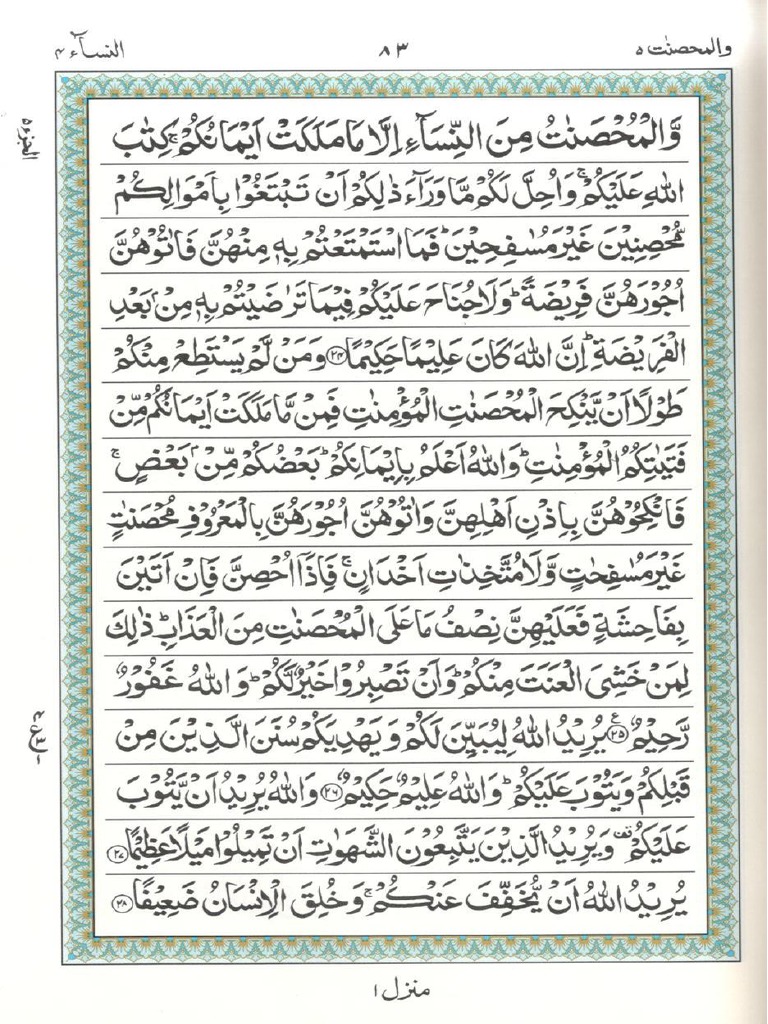 والمحصنت ٥
٨٣
النسآء ٤
الجزء ٥
وَّالْمُحْصَنٰتُ مِنَ النِّسَآءِ اِلَّا مَا مَلَكَتْ اَيْمَانُكُمْ ۚ كِتٰبَ
اللّٰهِ عَلَيْكُمْ ۚ وَاُحِلَّ لَكُمْ مَّا وَرَآءَ ذٰلِكُمْ اَنْ تَبْتَغُوْا بِاَمْوَالِكُمْ
مُّحْصِنِيْنَ غَيْرَ مُسٰفِحِيْنَ ؕ فَمَا اسْتَمْتَعْتُمْ بِهٖ مِنْهُنَّ فَاٰتُوْهُنَّ
اُجُوْرَهُنَّ فَرِيْضَةً ؕ وَلَا جُنَاحَ عَلَيْكُمْ فِيْمَا تَرٰضَيْتُمْ بِهٖ مِنْۢ بَعْدِ
الْفَرِيْضَةِ ؕ اِنَّ اللّٰهَ كَانَ عَلِيْمًا حَكِيْمًا ﴿٢٤﴾ وَمَنْ لَّمْ يَسْتَطِعْ مِنْكُمْ
طَوْلًا اَنْ يَّنْكِحَ الْمُحْصَنٰتِ الْمُؤْمِنٰتِ فَمِنْ مَّا مَلَكَتْ اَيْمَانُكُمْ مِّنْ
فَتَيٰتِكُمُ الْمُؤْمِنٰتِ ؕ وَاللّٰهُ اَعْلَمُ بِاِيْمَانِكُمْ ؕ بَعْضُكُمْ مِّنْۢ بَعْضٍ ۚ
فَانْكِحُوْهُنَّ بِاِذْنِ اَهْلِهِنَّ وَاٰتُوْهُنَّ اُجُوْرَهُنَّ بِالْمَعْرُوْفِ مُحْصَنٰتٍ
غَيْرَ مُسٰفِحٰتٍ وَّلَا مُتَّخِذٰتِ اَخْدَانٍ ۚ فَاِذَاۤ اُحْصِنَّ فَاِنْ اَتَيْنَ
بِفَاحِشَةٍ فَعَلَيْهِنَّ نِصْفُ مَا عَلَى الْمُحْصَنٰتِ مِنَ الْعَذَابِ ؕ ذٰلِكَ
لِمَنْ خَشِيَ الْعَنَتَ مِنْكُمْ ؕ وَاَنْ تَصْبِرُوْا خَيْرٌ لَّكُمْ ؕ وَاللّٰهُ غَفُوْرٌ
رَّحِيْمٌ ﴿٢٥﴾ يُرِيْدُ اللّٰهُ لِيُبَيِّنَ لَكُمْ وَيَهْدِيَكُمْ سُنَنَ الَّذِيْنَ مِنْ
قَبْلِكُمْ وَيَتُوْبَ عَلَيْكُمْ ؕ وَاللّٰهُ عَلِيْمٌ حَكِيْمٌ ﴿٢٦﴾ وَاللّٰهُ يُرِيْدُ اَنْ يَّتُوْبَ
عَلَيْكُمْ ۟ وَيُرِيْدُ الَّذِيْنَ يَتَّبِعُوْنَ الشَّهَوٰتِ اَنْ تَمِيْلُوْا مَيْلًا عَظِيْمًا ﴿٢٧﴾
يُرِيْدُ اللّٰهُ اَنْ يُّخَفِّفَ عَنْكُمْ ۚ وَخُلِقَ الْاِنْسَانُ ضَعِيْفًا ﴿٢٨﴾
منزل ١